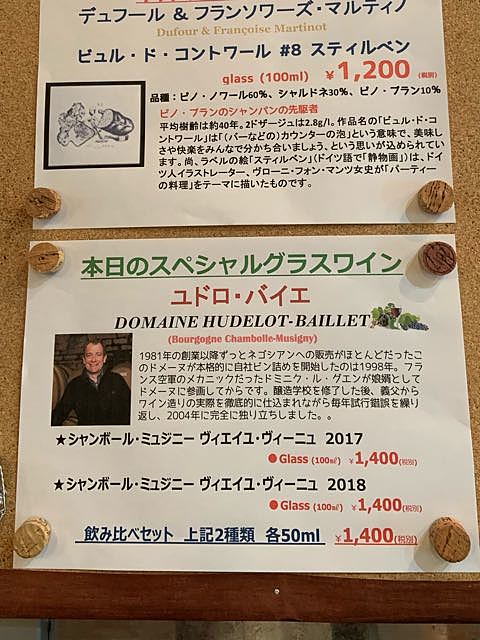 デュフール & フランソワーズ・マルティノ
Dufour & Françoise Martinot
ビュル・ド・コントワール #8 スティルベン
glass (100ml) ￥1,200 (税別)
品種：ピノ・ノワール60%、シャルドネ30%、ピノ・ブラン10%
ピノ・ブランのシャンパンの先駆者
平均樹齢は約40年。2ドザージュは2.8g/l。作品名の「ビュル・ド・コ
ントワール」は「（バーなどの）カウンターの泡」という意味で、美味し
さや快楽をみんなで分かち合いましょう、という思いが込められてい
ます。尚、ラベルの絵「スティルベン」（ドイツ語で「静物画」）は、ドイ
ツ人イラストレーター、ヴローニ・フォン・マンツ女史が「パーティー
の料理」をテーマに描いたものです。
本日のスペシャルグラスワイン
ユドロ・バイエ
DOMAINE HUDELOT-BAILLET
(Bourgogne Chambolle-Musigny)
1981年の創業以降ずっとネゴシアンへの販売がほとんどだったこ
のドメーヌが本格的に自社ビン詰めを開始したのは1998年。フラ
ンス空軍のメカニックだったドミニク・ル・グエンが娘婿として
ドメーヌに参画してからです。醸造学校を修了した後、義父から
ワイン造りの実際を徹底的に仕込まれながら毎年試行錯誤を繰り
返し、2004年に完全に独り立ちしました。。
★シャンボール・ミュジニー ヴィエイユ・ヴィーニュ 2017
●Glass (100㎖) ￥1,400(税別)
★シャンボール・ミュジニー ヴィエイユ・ヴィーニュ 2018
●Glass (100㎖) ￥1,400(税別)
飲み比べセット 上記2種類 各50ml ￥1,400(税別)